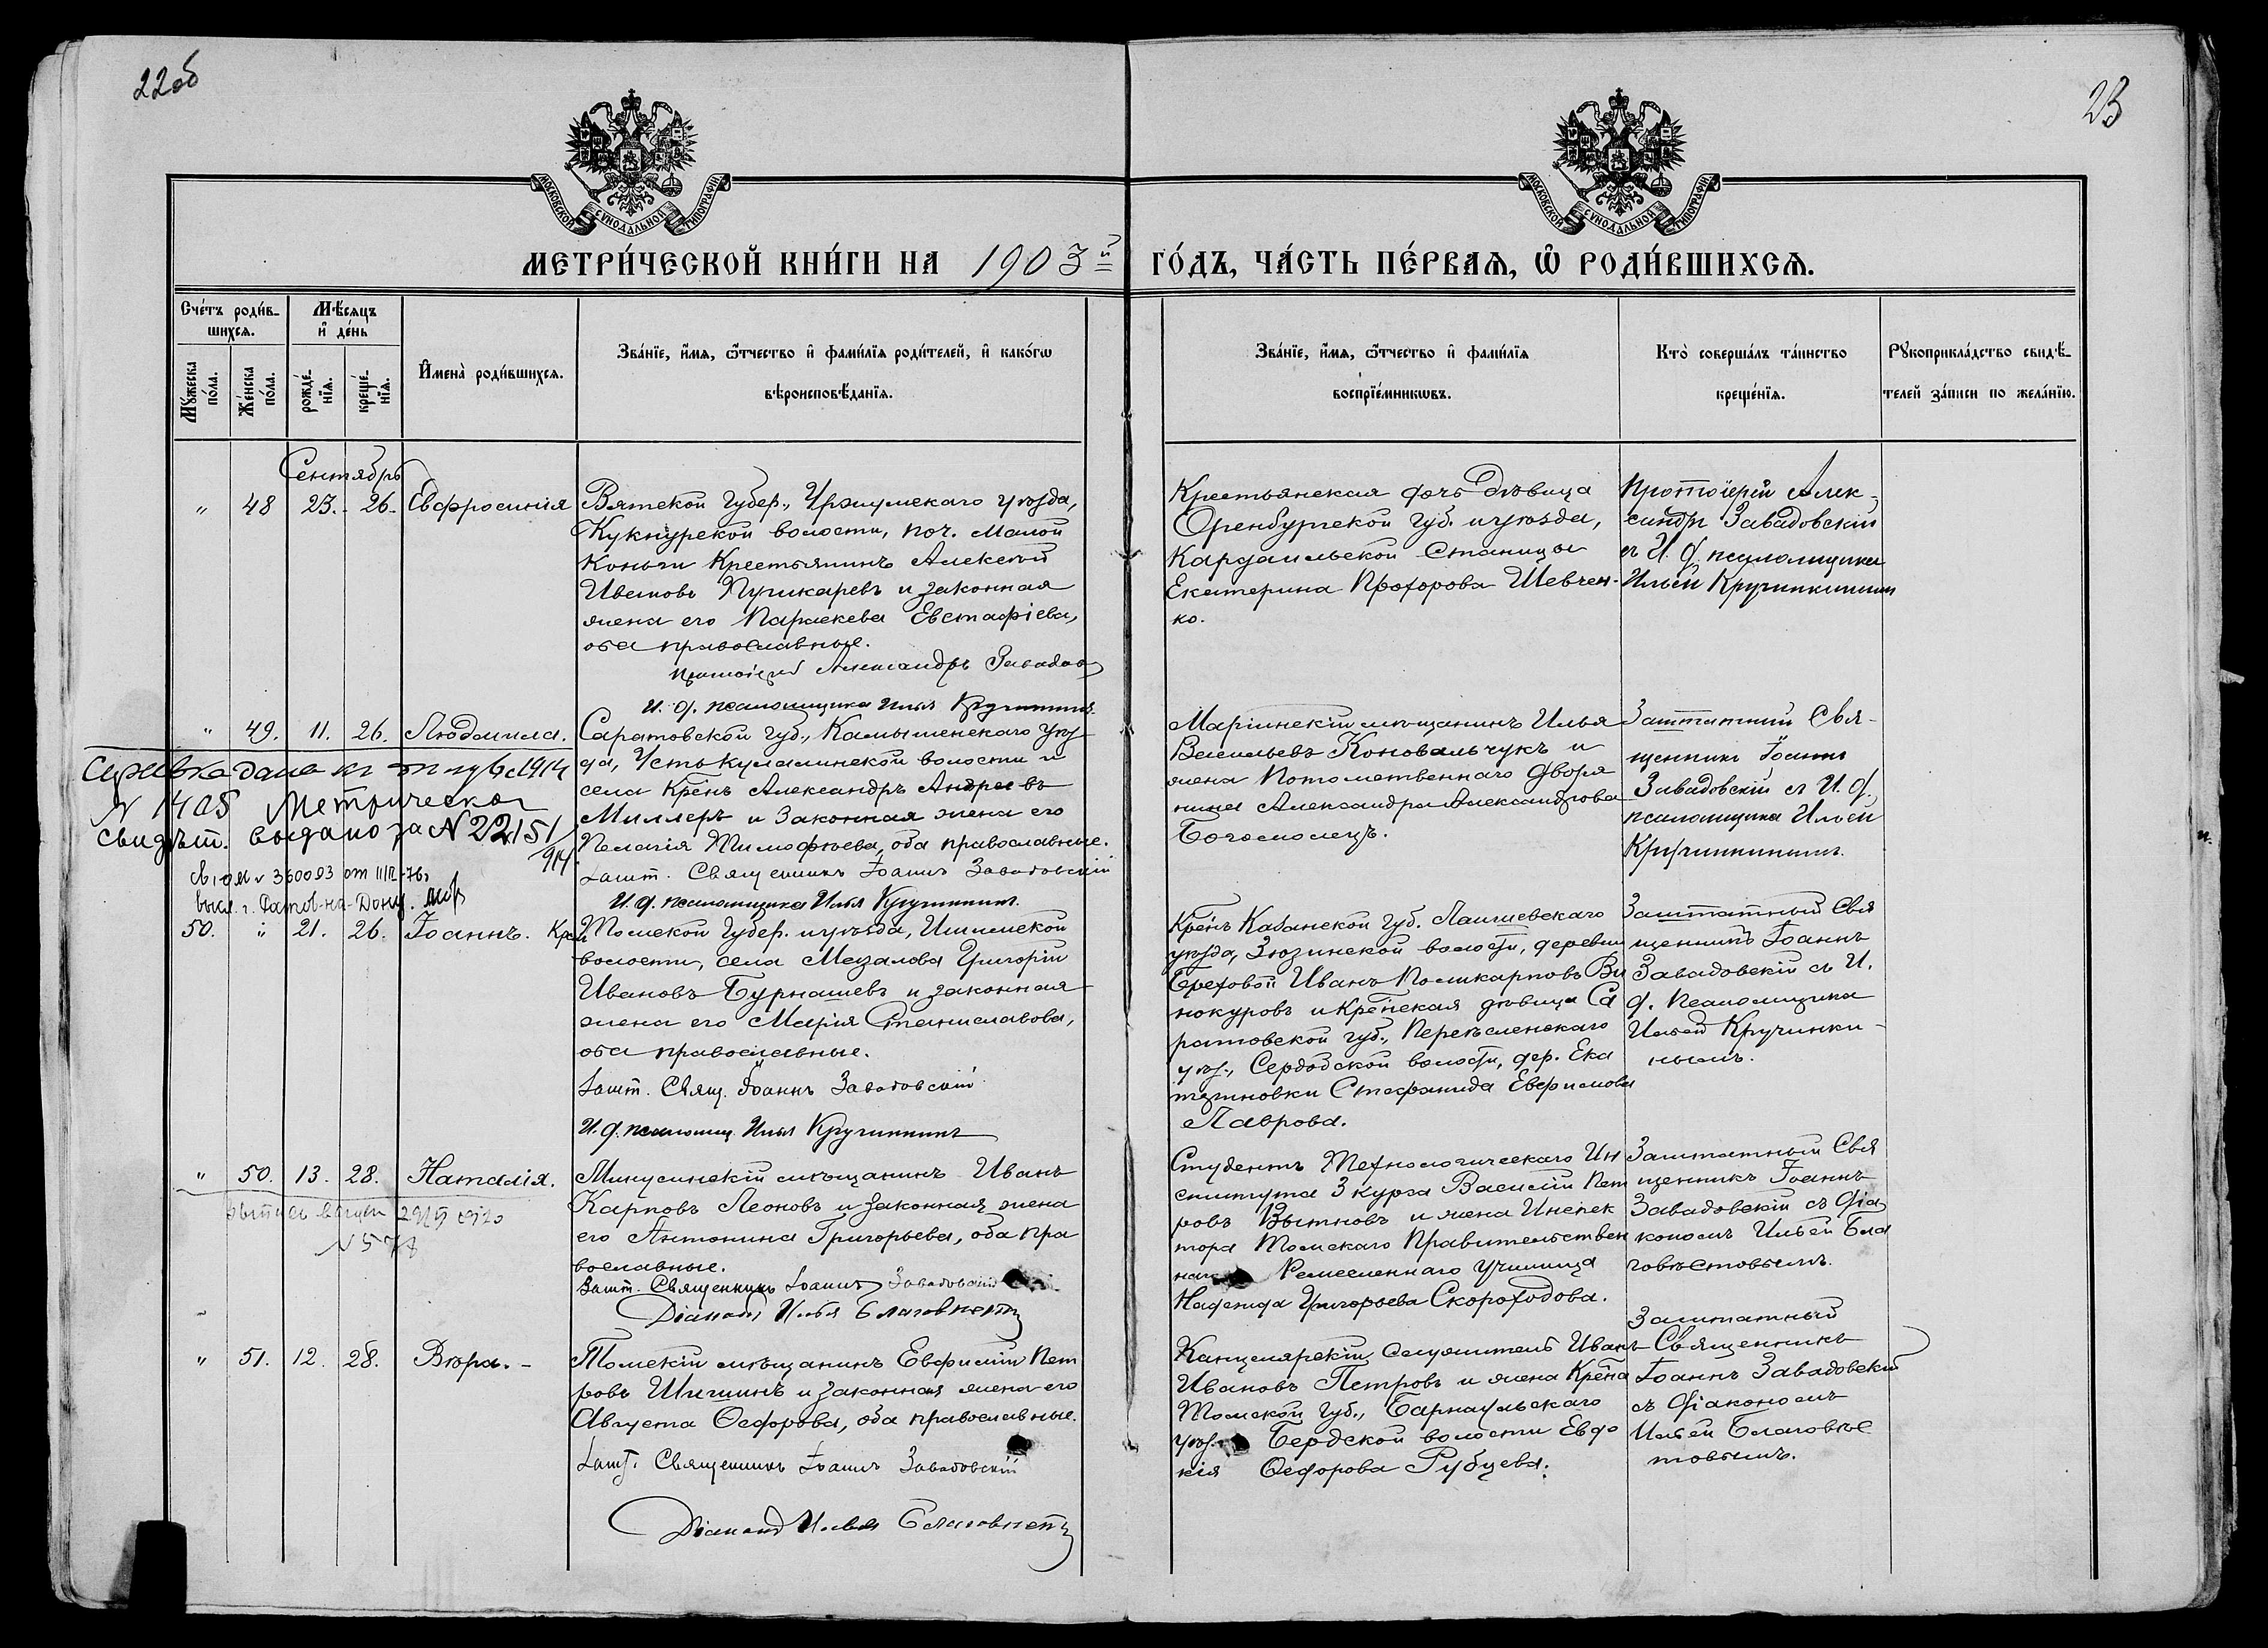 22об
23
МОСКОВСКОЙ СѴНОДАЛЬНОЙ ТИПОГРАФІИ
МОСКОВСКОЙ СѴНОДАЛЬНОЙ ТИПОГРАФІИ
МЕТРИ́ЧЕСКОЙ КНИ́ГИ НА 1903й ГО́ДЪ, ЧА́СТЬ ПЕ́РВАѦ, Ѡ РОДИ́ВШИХСѦ.
Сче́тъ роди́в-
шихсѧ.
Мѣ́сѧцъ
и де́нь
Мꙋ́жеска
по́ла.
Же́нска
по́ла.
рожде́-
нїѧ.
креще́-
нїѧ.
И҆мена̀ роди́вшихсѧ.
Зва́нїе, и҆́мѧ, ѻ҆́тчество и҆ фами́лїѧ роди́телей, и҆ како́гѡ
вѣроисповѣ́данїѧ.
Зва́нїе, и҆́мѧ, ѻ҆́тчество и҆ фами́лїѧ
воспрїе́мникѡвъ.
Кто̀ соверша́лъ та́инство
креще́нїѧ.
Рꙋкоприкла́дство свидѣ́-
телей за́писи по жела́нїю.
Сентябрь
" 48 23. 26. Евфросинія
Вятской губер., Уржумскаго уѣзда,
Кукнурской волости, поч. Малой
Коньги крестьянинъ Алексѣй
Ивановъ Пушкаревъ и законная
жена его Параскева Евстафіева,
оба православные.
Протоіерей Александръ Завадов
И. д. псаломщика Илья Кручинкинъ.
Крестьянская дочь дѣвица
Оренбургской губ. и уѣзда,
Кардаильской станицы
Екатерина Прохорова Шевчен-
ко.
Протоіерей Алек-
сандръ Завадовскій
съ И. д. псаломщика
Ильей Кручинкинымъ
" 49. 11. 26. Людмила.
Саратовской губ., Камышенскаго уѣз
да, Усть Кулалинской волости и
села Кр-нъ Александръ Андреевъ
Миллеръ и законная жена его
Пелагія Тимофѣева, оба православные.
Зашт. Священникъ Іоаннъ Завадовскій
И. д. псаломщика Илья Кручинкинъ.
Маріинскій мѣщанинъ Илья
Васильевъ Коновальчукъ и
жена Потомственнаго дворя
нина Александра Александрова
Богомолецъ.
Заштатный Свя-
щенникъ Іоаннъ
Завадовскій съ И. д.
псаломщика Ильей
Кручинкинымъ.
Справка дана 1914
N 1405 Метрическое
свидѣт. выдано за N 22151
914
N 360093 от 76
высл. г. Ростов-на-Дону.
50. " 21. 26. Іоаннъ. Крен
Томской губер. и уѣзда, Ишимской
волости, села Мазалова Григорій
Ивановъ Бурнашевъ и законная
жена его Марія Станиславова,
оба православные.
Зашт. Свящ. Іоаннъ Завадовскій
И. д. псаломщ. Илья Кручинкинъ
Кр-нъ Казанской губ. Лаишевскаго
уѣзда, Зюзинской волости, деревни
Береховой Иванъ Поликарповъ Ви
нокуровъ и Кр-нская дѣвица Са
ратовской губ.,
уѣз., Сердобской волости, дер. Ека
териновки Стефанида Евфимова
Лаврова.
Заштатный Свя
щенникъ Іоаннъ
Завадовскій съ И.
д. псаломщика
Ильей Кручинки-
нымъ.
" 50. 13. 28. Наталія.
Минусинскій мѣщанинъ Иванъ
Карповъ Леоновъ и законная жена
его Антонина Григорьева, оба пра
вославные.
Зашт. Священникъ Іоаннъ Завадовскій
Діаконъ Илья Благовѣстъ
Студентъ Технологическаго Ин
ститута 3 курса Василій Пет
ровъ Вытновъ и жена Инспек
тора Томскаго Правительствен
наго Ремесленнаго Училища
Надежда Григорьева Скороходова.
Заштатный Свя
щенникъ Іоаннъ
Завадовскій съ діа
кономъ Ильей Бла
говѣстовымъ.
N 578
" 51. 12. 28. Вѣра. -
Томскій мѣщанинъ Евфимій Пет
ровъ Шишинъ и законная жена его
Августа Ѳедорова, оба православные.
Зашт. Священникъ Іоаннъ Завадовскій
Діаконъ Илья Благовѣстъ
Канцелярскій служитель Иванъ
Ивановъ Петровъ и жена Кр-на
Томской губ., Барнаульскаго
уѣз. Бердской волости Евдо
кія Ѳедорова Рубцева.
Заштатный
Священникъ
Іоаннъ Завадовскій
съ діакономъ
Ильей Благовѣс
товымъ.